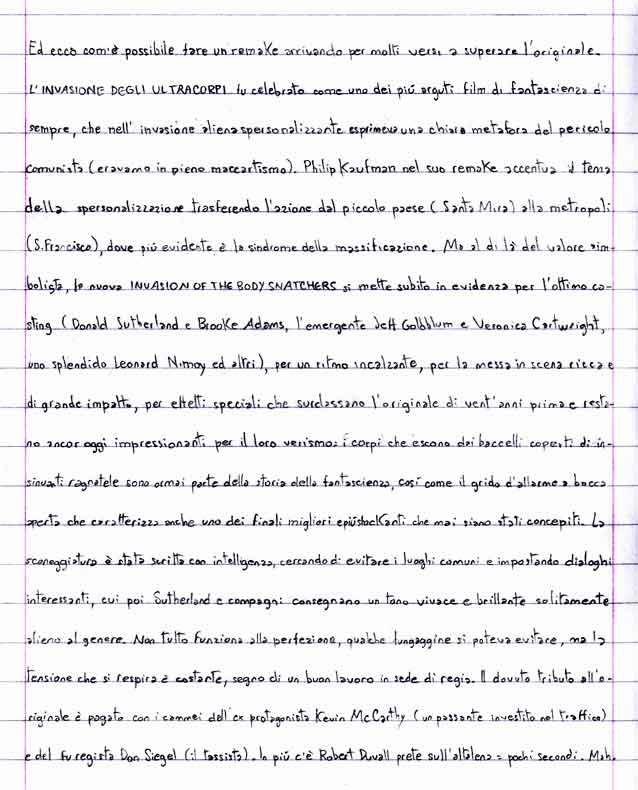 Ed ecco com'è possibile fare un remake arrivando per molti versi a superare l'originale.
L'INVASIONE DEGLI ULTRACORPI fu celebrato come uno dei più arguti film di fantascienza di
sempre, che nell' invasione aliena spersonalizzante esprimeva una chiara metafora del pericolo
comunista (eravamo in pieno maccartismo). Philip Kaufman nel suo remake accentua il tema
della spersonalizzazione trasferendo l'azione dal piccolo paese (Santa Mira) alla metropoli
(S.Francisco), dove più evidente è la sindrome della massificazione. Ma al di là del valore sim-
bolista, la nuova INVASION OF THE BODY SNATCHERS si mette subito in evidenza per l'ottimo ca-
sting (Donald Sutherland e Brooke Adams, l'emergente Jeff Goldblum e Veronica Cartwright,
uno splendido Leonard Nimoy ed altri), per un ritmo incalzante, per la messa in scena ricca e
di grande impatto, per effetti speciali che surclassano l'originale di vent'anni prima e resta-
no ancor oggi impressionanti per il loro verismo: i corpi che escono dai baccelli coperti di in-
sinuanti ragnatele sono ormai parte della storia della fantascienza, così come il grido d'allarme a bocca
aperta che caratterizza anche uno dei finali migliori e più shockanti che mai siano stati concepiti. La
sceneggiatura è stata scritta con intelligenza, cercando di evitare i luoghi comuni e impostando dialoghi
interessanti, cui poi Sutherland e compagni consegnano un tono vivace e brillante solitamente
alieno al genere. Non tutto funziona alla perfezione, qualche lungaggine si poteva evitare, ma la
tensione che si respira è costante, segno di un buon lavoro in sede di regia. Il dovuto tributo all'o-
riginale è pagato con i cammei dell'ex protagonista Kevin McCarthy (un passante investito nel traffico)
e del fu regista Don Siegel (il tassista). In più c'è Robert Duvall prete sull'altalena: pochi secondi. Mah.